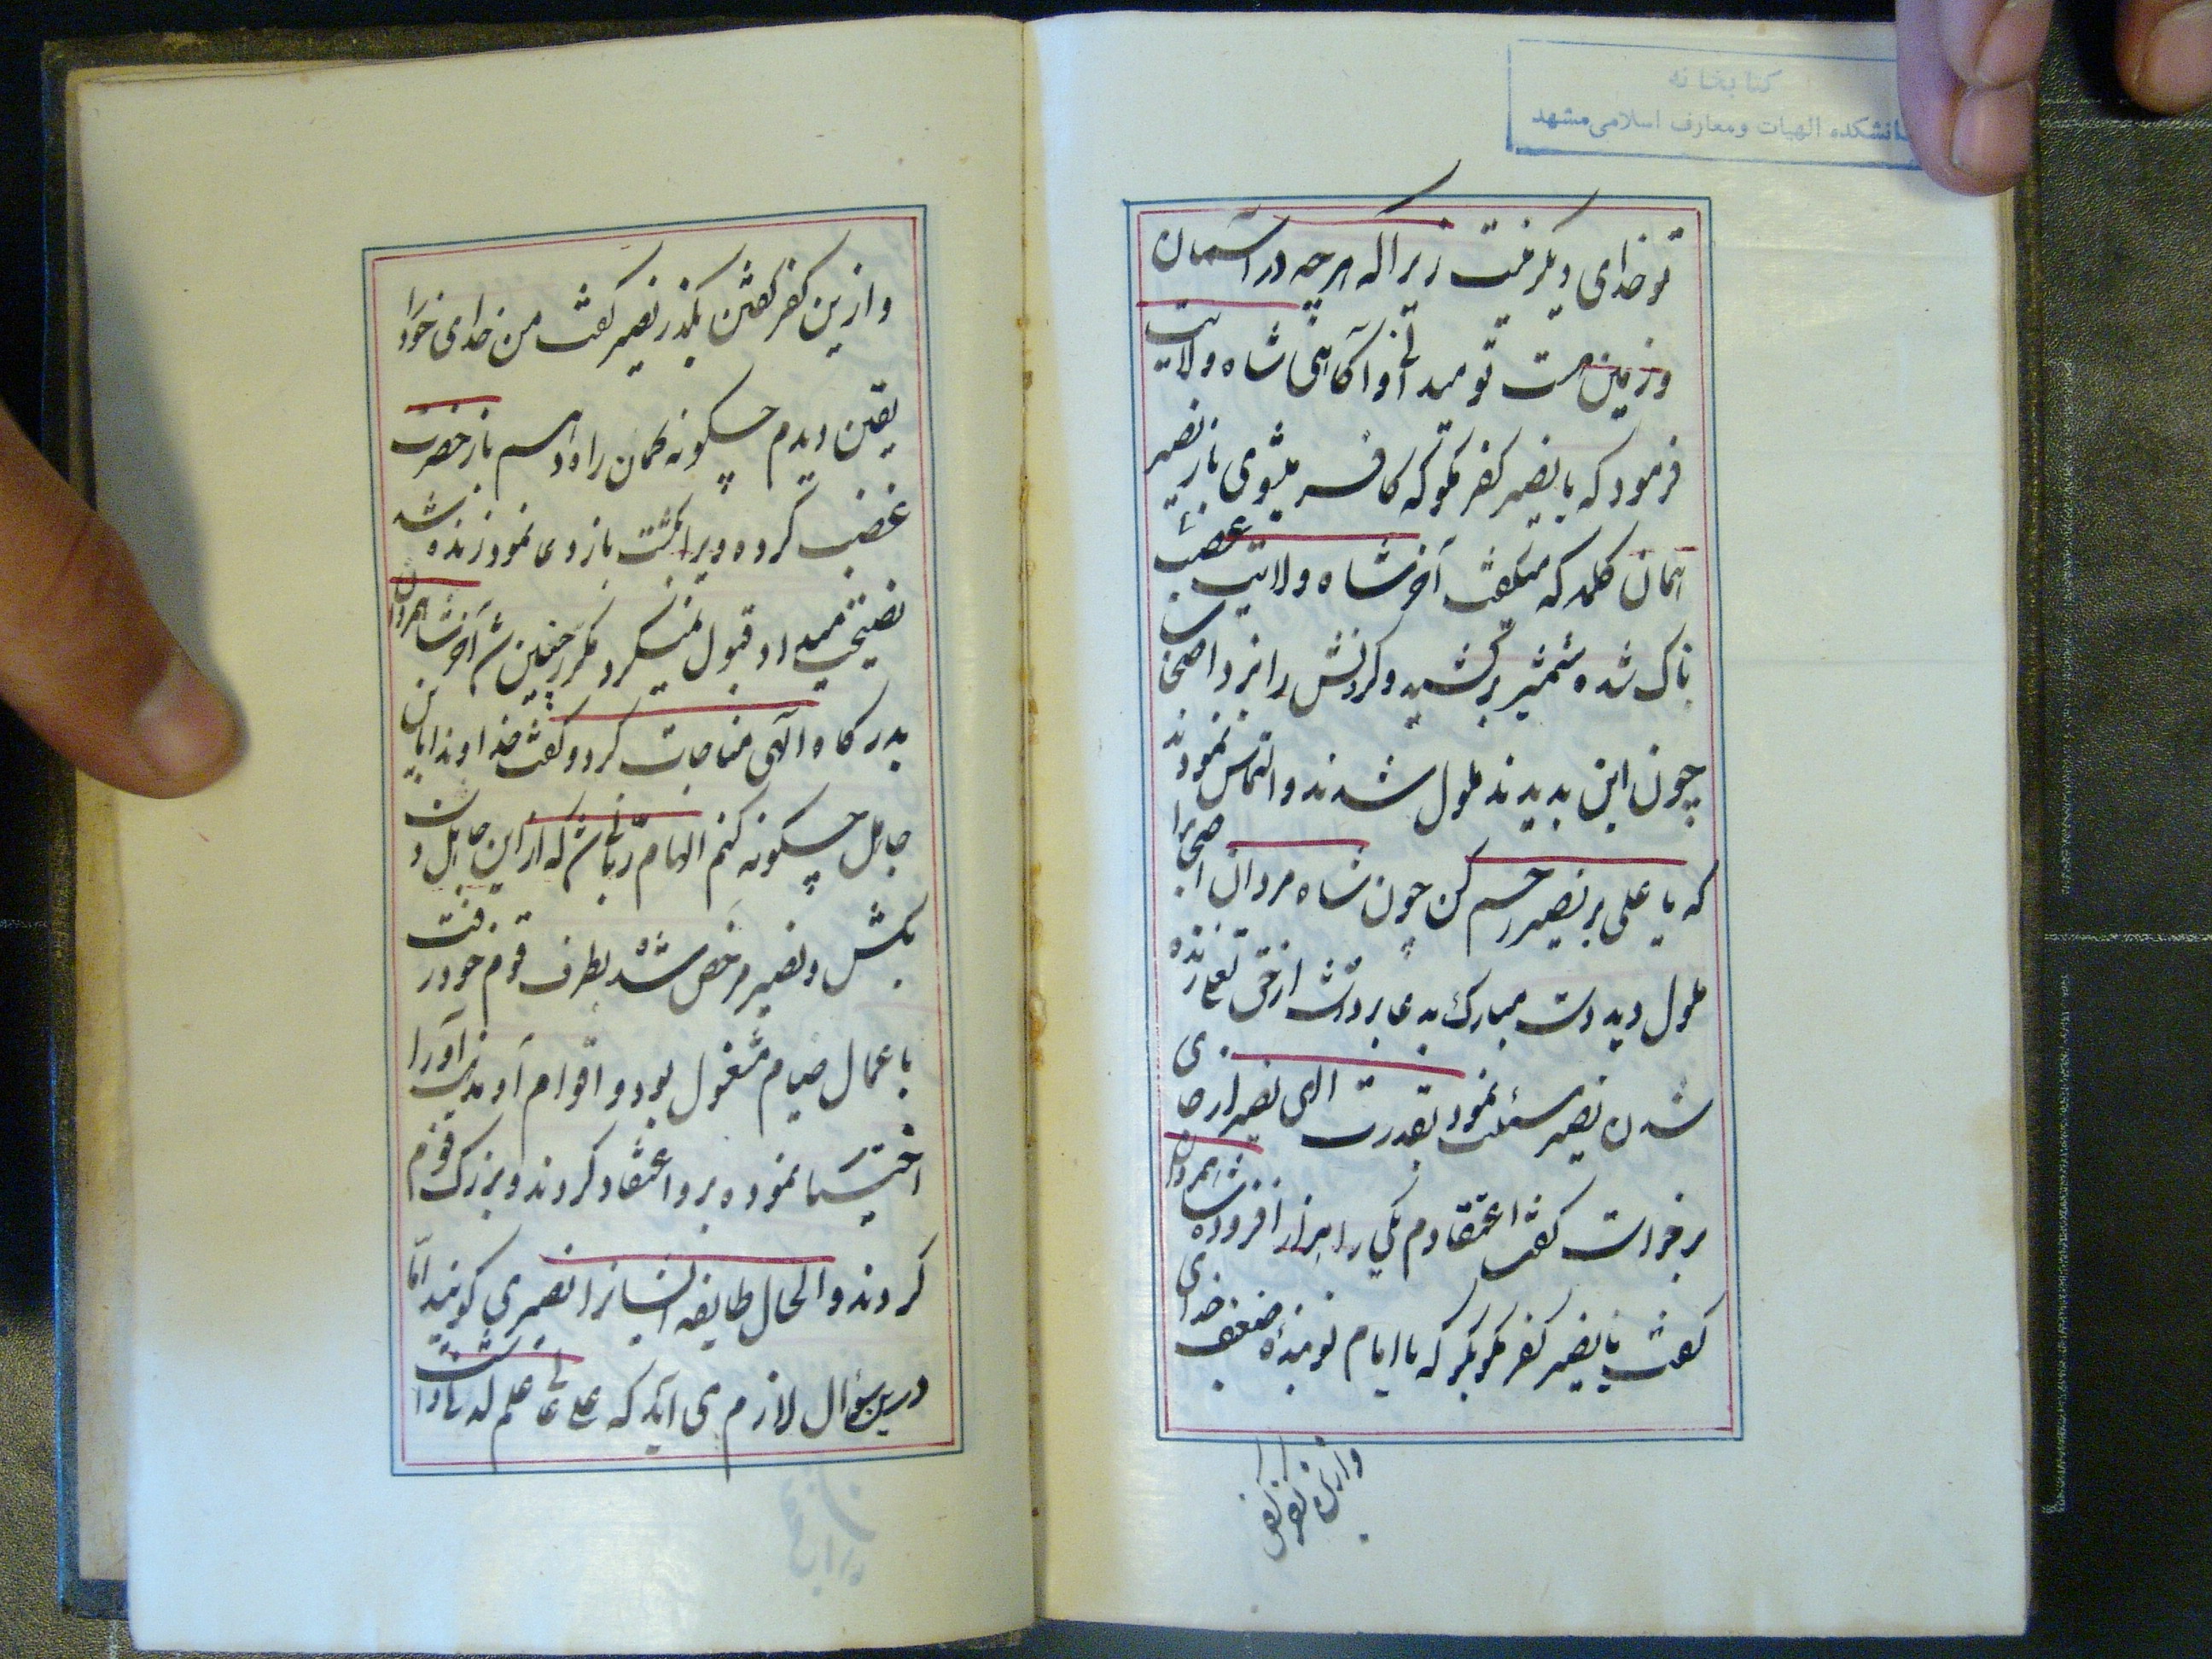 کتابخانه
دانشکده الهیات و معارف اسلامی مشهد
تو خدای دیگر نیست زیرا که هر چه در آسمان
و زمین هست تو میدانی و آگاهی شاه ولایت
فرمود که یا نصیر کفر مگو که کافر میشوی باز نصیر
همان کلمه که میگفت آخر شاه ولایت غضب
ناک شده شمشیر برکشید و گردنش را بزد اصحابان
چون این بدیدند ملول شدند و التماس نمودند
که یا علی بر نصیر رحم کن چون شاه مردان اصحابرا
ملول دید دست مبارک بدعا برداشت از حق تعالی زنده
شدن نصیر مسئلت نمود بقدرت الهی نصیر از جای
برخواست گفت اعتقادم یکی را هزار افزوده شاهمردان
گفت یا نصیر کفر مگو بگو که یا امام تو بنده ضعیف خدای
وازین کفر گفتن
وازین کفر گفتن بگذر نصیر گفت من خدای خود را
یقین دیدم چگونه گمان راه دهم باز حضرت
غضب کرده ویرا کشت باز دعا نمود زنده شد
نصیحت میداد قبول نمیکرد مکرر چنین شد آخر شاهمردان
بدرگاه الهی مناجات کرد و گفت خداوندا باین
جاهل چگونه کنم الهام ربانی شد که از این جاهل دست
بکش و نصیر مرخص شده بطرف قوم خود رفت
باعمال صیام مشغول بود و اقوام او مذهب او را
اختیار نموده برو اعتقاد کردند و بزرگ قوم
کردند و الحال طایفه ایشانرا نصیری گویند اما
درین سؤال لازم می آید که علی عالی علم لدنی داشت